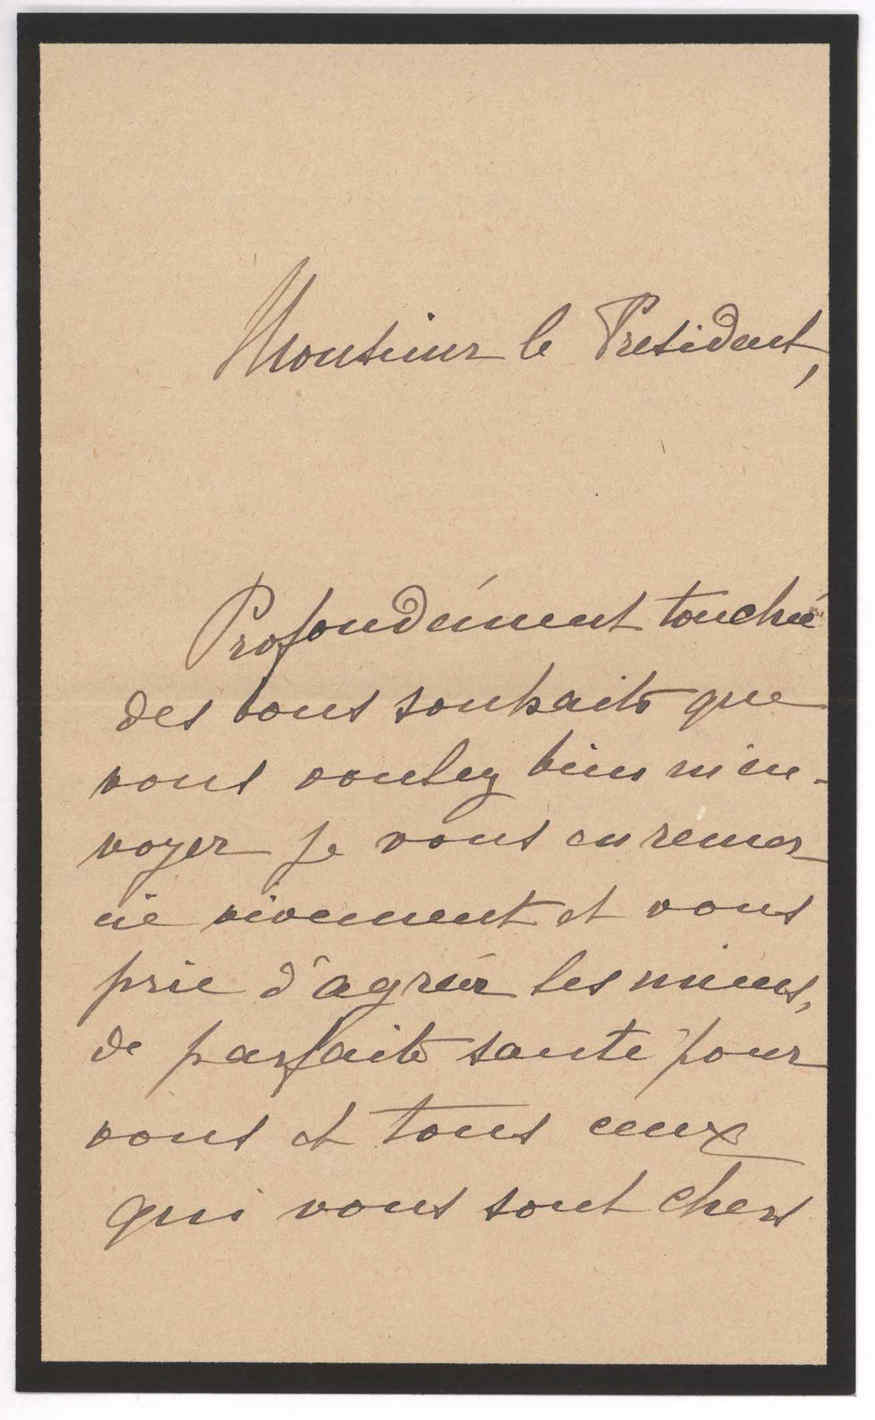 Monsieur le President,
Profondément touchée
des bons souhaits que
vous voulez bien m'en-
voyer je vous en remer
cie vivement et vous
prie d'agréer les miens,
de parfaite santé pour
vous et tous ceux
qui vous sont chers